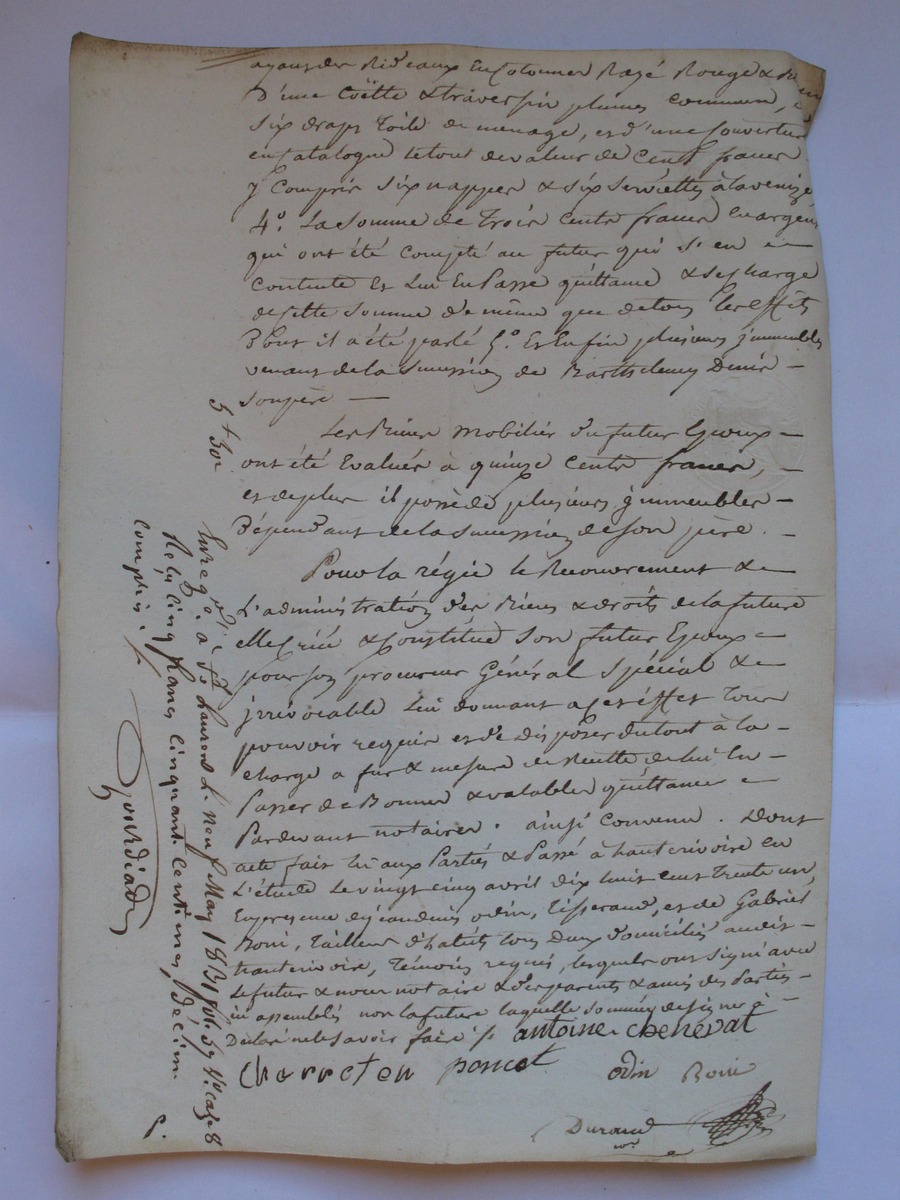 ayant des Rideaux en Cotonner Razé Rouge &
D'une Coëtte & traversin plumes commun,
six draps toile de menage, et d'une Couverture
en Catalogne le tout de valeur de Cent francs
y Compris six nappes & six Serviettes à la venize
4.° La Somme de Trois Cents francs en argent
qui ont été compté au futur qui s'en
contente Et Lui En Passe quittance & decharge
de cette Somme de même que de tous les effets
Dont il a été parlé 5.° Et Enfin plusieurs jmmeubles
venant de la Succession de Barthelemy Denis
son père —
Les Biens mobilier du futur Epoux —
ont été Evalués à quinze Cents francs, —
et de plus il possède plusieurs jmmeubles —
Dépendant de la Succession de son père. —
Pour la régie le Recouvrement &
L'administration des Biens & droits de la future
elle Créé & Constitue Son futur Epoux
pour son procureur Général Spécial &
jrrévocable Lui donnant a cet éffet Tous
pouvoir requis et de disposer du tout à la —
charge a fur & mesure de Reccette de lui En —
Passer de Bonnes & valables quittances
Pardevant notaires. ainsi Convenu. Dont
acte fait lu aux Parties & Passé à hauterivoire En
L'étude Le vingt cinq avril dix huit cent trente un,
En presence de jean denis odin, Tisserand, et de Gabriel
Boni, Tailleur d'habits tous Deux domiciliés audit —
hauterivoire, Témoins requis, lesquels ont signé avec
Le futur & nous notaire & des parents & amis des Parties —
ici assemblés non la future laquelle sommée de signer à —
Déclaré ne le savoir faire /. antoine chenevat
Charreton poncet odin Boni
Durand
nre
5 f
50c
Enreg.é à St. Laurent le neuf May 1831 fol. 59 V.° case 8
Reçu cinq francs cinquante centimes, décime
compris. /.
Gourdiat